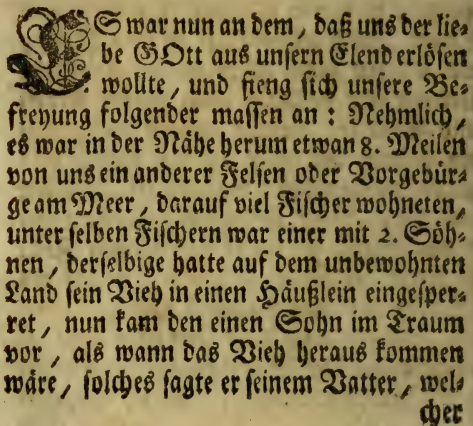 ES war nun an dem / daß uns der lie-
be GOtt aus unsern Elend erlösen
wollte / und fieng sich unsere Be-
freyung folgender massen an : Nehmlich /
es war in der Nähe herum etwan 8. Meilen
von uns ein anderer Felsen oder Vorgebür-
ge am Meer / darauf viel Fischer wohneten /
unter selben Fischern war einer mit 2. Söh-
nen / derselbige hatte auf dem unbewohnten
Land sein Vieh in einen Häußlein eingesper-
ret / nun kam den einen Sohn im Traum
vor / als wann das Vieh heraus kommen
wäre / solches sagte er seinem Vatter / wel-
cher